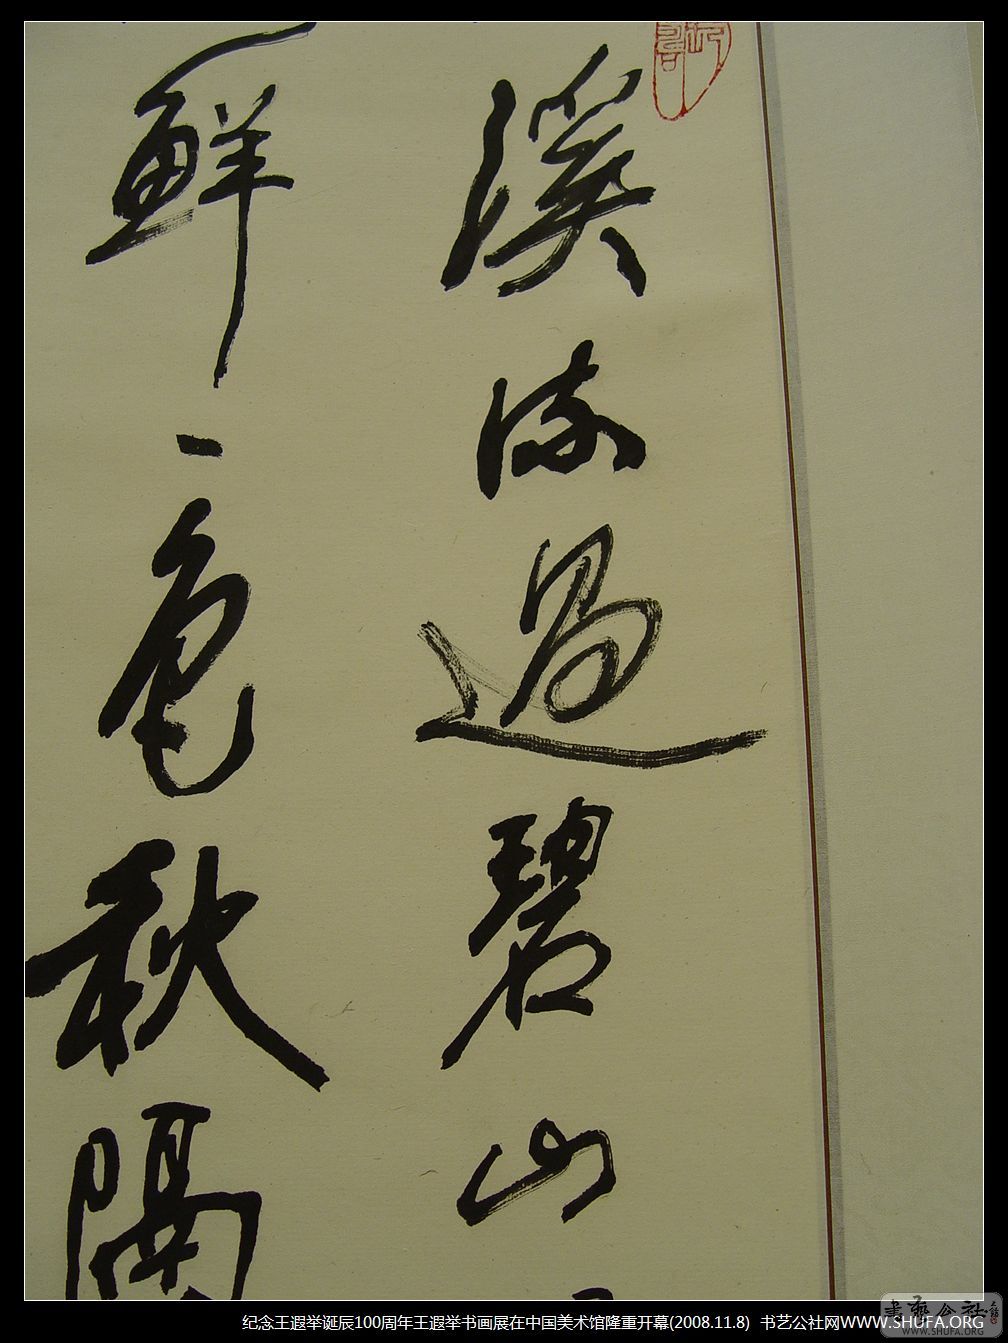 溪流過碧山
鮮一色秋隔
纪念王遐举诞辰100周年王遐举书画展在中国美术馆隆重开幕(2008.11.8) 书艺公社网WWW.SHUFA.ORG
書藝公社
WWW.SHUFA.ORG